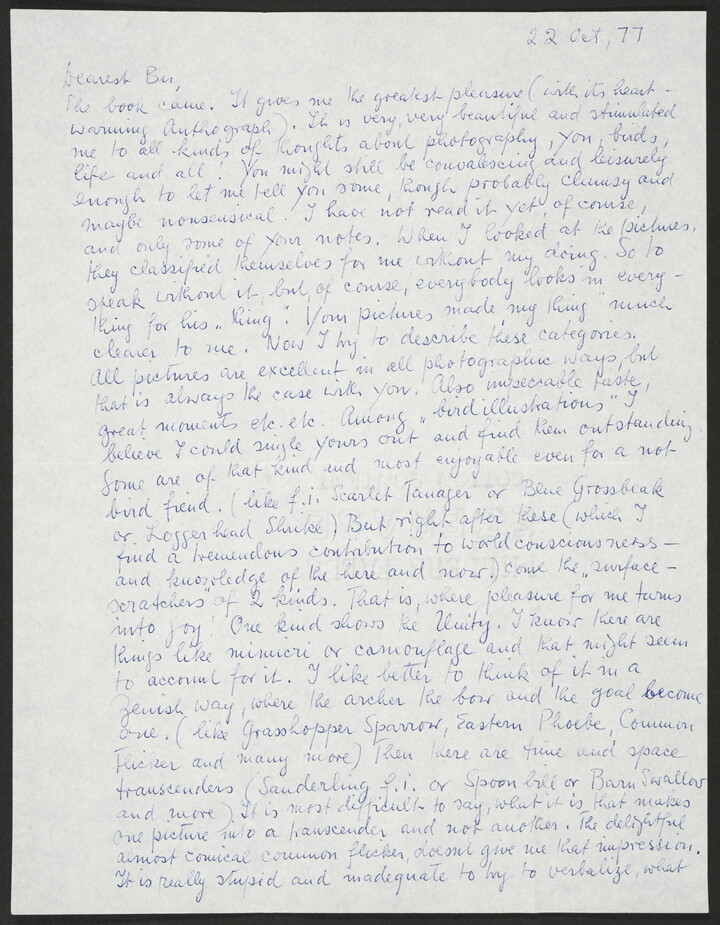 22 Oct, 77
Dearest Bu,
The book came. It gives me the greatest pleasure (with its heart-
warming Anthograph). It is very, very beautiful and stimulated
me to all kinds of thoughts about photography, you, birds,
life and all! You might still be convalescing and leisurely
enough to let me tell you some, though probably clumsy and
maybe nonsensical. I have not read it yet, of course,
and only some of your notes. When I looked at the pictures,
they classified themselves for me without my doing. So to
speak without it, but, of course, everybody looks in every-
thing for his „thing". Your pictures made „my thing" much
clearer to me. Now I try to describe these categories.
All pictures are excellent in all photographic ways, but
that is always the case with you. Also taste,
great moments etc. etc. Among „bird illustrations" I
believe I could single yours out and find them outstanding.
Some are of that kind and most enjoyable even for a not
bird fiend. (like f.i. Scarlet Tanager or Blue Grossbeak
or Logger head Shrike) But right after these (which I
find a tremendous contribution to world consciousness—
and knowledge of the here and now.) come the „surface-
scratchers" of 2 kinds. That is, where pleasure for me turns
into joy! One kind shows the Unity. I know there are
things like mimicri or camouflage and that might seem
to account for it. I like better to think of it in a
Zenish way, where the archer the bow and the goal become
one. (like Grasshopper Sparrow, Eastern Phoebe, Common
Flicker and many more) Then there are time and space
transcenders (Sanderling f.i. or Spoon bill or Barn Swallow
and more). It is most difficult to say, what it is that makes
one picture into a transcender and not another. The delightful
almost comical common flicker, doesnt give me that impression.
It is really stupid and inadequate to try to verbalize, what